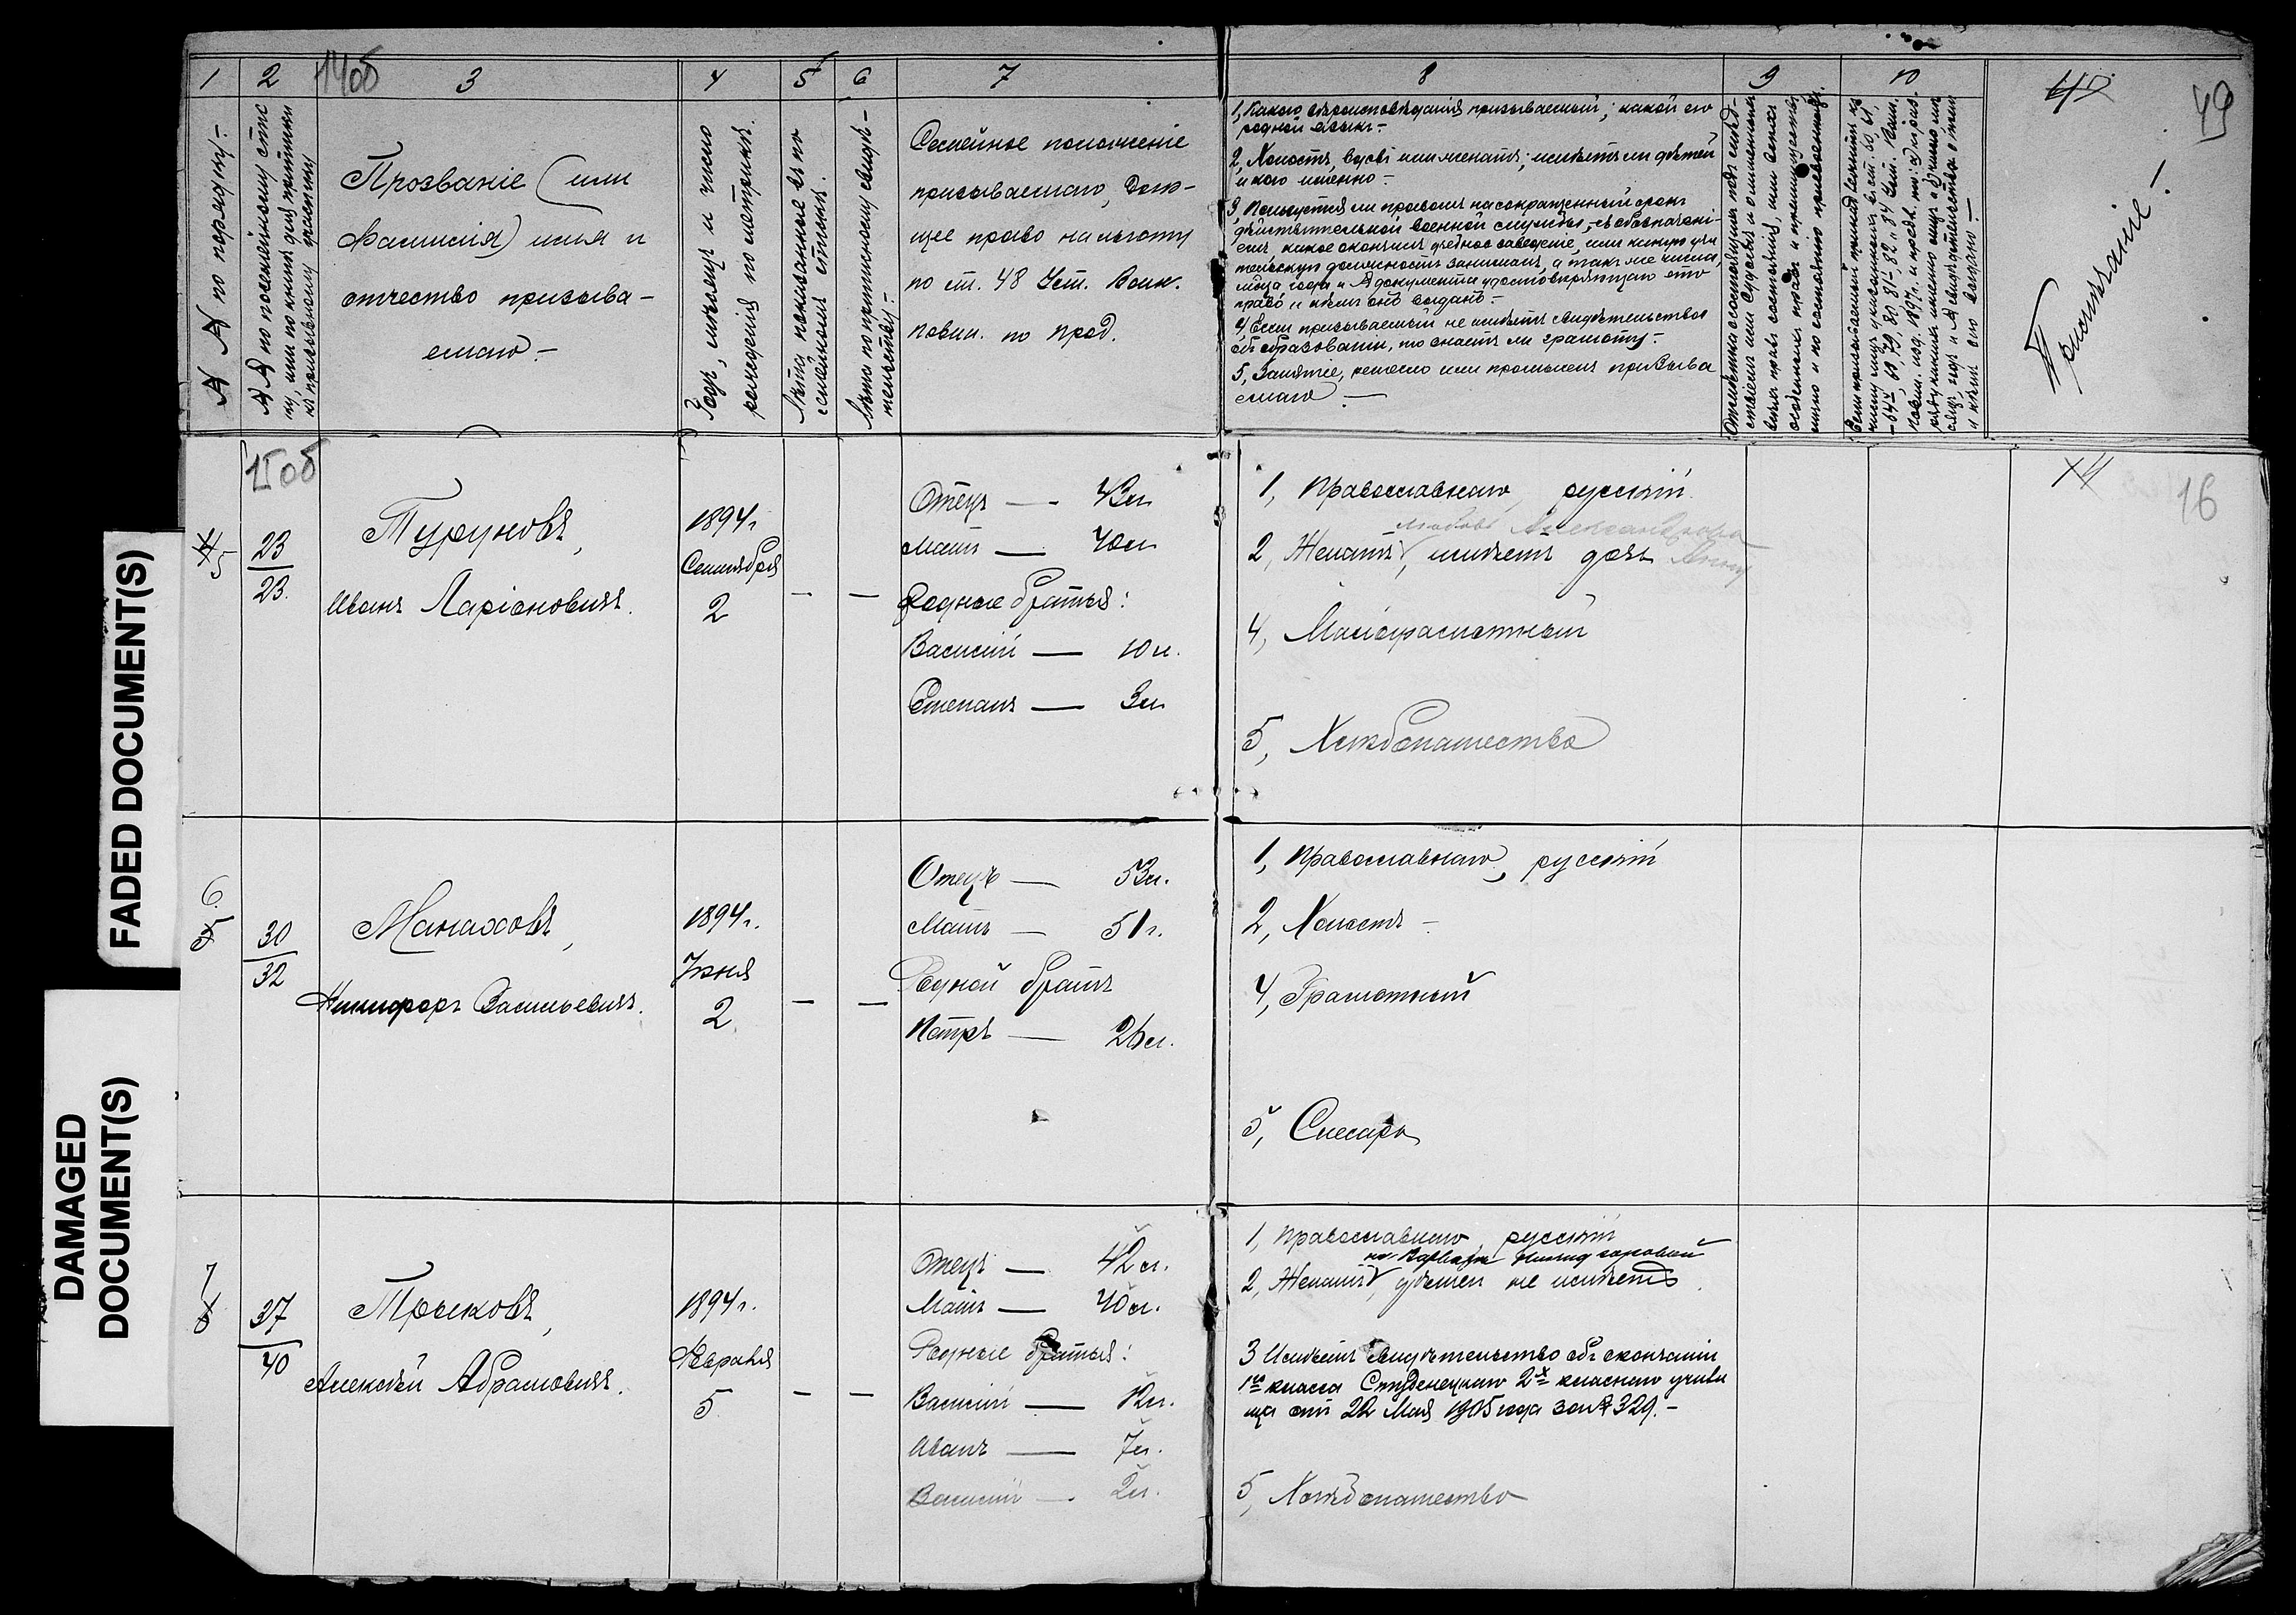 FADED DOCUMENT(S)
DAMAGED
DOCUMENT(S)
1 2 3 4 5 6 7 8 9 10
14об
40
49
№ № по порядку.
№ № по посемейному спис
ку, или по книгѣ для приписки
къ призывному участку
Прозваніе (или
Фамилія) имя и
отчество призыва-
емаго.-
Годъ, мѣсяцъ и число
рожденія по метрикѣ.
Лѣта показанные въ по
семейномъ спискѣ.
Лѣта по приписному свидѣ-
тельству.-
Семейное положеніе
призываемаго, даю-
щее право на льготу
по ст. 48 Уст. Воин.
повин. по прод.
1, Какого вѣроисповѣданія призываемый; какой его
родной языкъ.-
2, Холостъ, вдовъ или женатъ; имѣетъ ли дѣтей
и кого именно-
3, Пользуется ли правомъ на сокращенный срокъ
дѣйствительной военной службы, съ обозначені-
емъ, какое окончилъ учебное заведеніе, или какую учи
тельскую должность занималъ, а также числа,
мѣсяца года и № документа удостовѣряющаго это
право и кѣмъ онъ выданъ-
4, Если призываемый не имѣетъ свидѣтельства
объ образованіи, то знаетъ ли грамоту.-
5, Занятіе, ремесло или промыселъ призыва
емаго-
Примѣчаніе-
15об
16
5
23
23.
Туруновъ,
Иванъ Ларіоновичъ.
1894г
Сентября
2
— —
Отецъ — 43л
Мать — 40л
Родные братья:
Василій — 10л.
Степанъ — 3л
1, Православнаго, русскій
Любовь Александрова
2, Женатъ, имѣетъ дочь Анну
4, Малограмотный
5, Хлѣбопашество
6.
5
30
32
Манаховъ,
Никифоръ Васильевичъ.
1894г.
Іюня
2
— —
Отецъ — 53л.
Мать — 51г.
Родной братъ
Петръ — 26л.
1, Православнаго, русскій
2, Холостъ-
4, Грамотный
5, Слесарь
7
6
37
40
Трыковъ,
Алексѣй Абрамовичъ.
1894г.
Февраля
5
— —
Отецъ — 42л.
Мать — 40л.
Родные братья:
Василій — 12л.
Иванъ — 7л.
Василій — 2л.
1, Православнаго, русскій
на Варварѣ
2, Женатъ, дѣтей не имѣетъ.
3 Имѣетъ свидѣтельство объ окончаніи
1го класса Студенецкаго 2х класнаго учили
ща отъ 22 Мая 1905 года за № 329.-
5, Хлѣбопашество